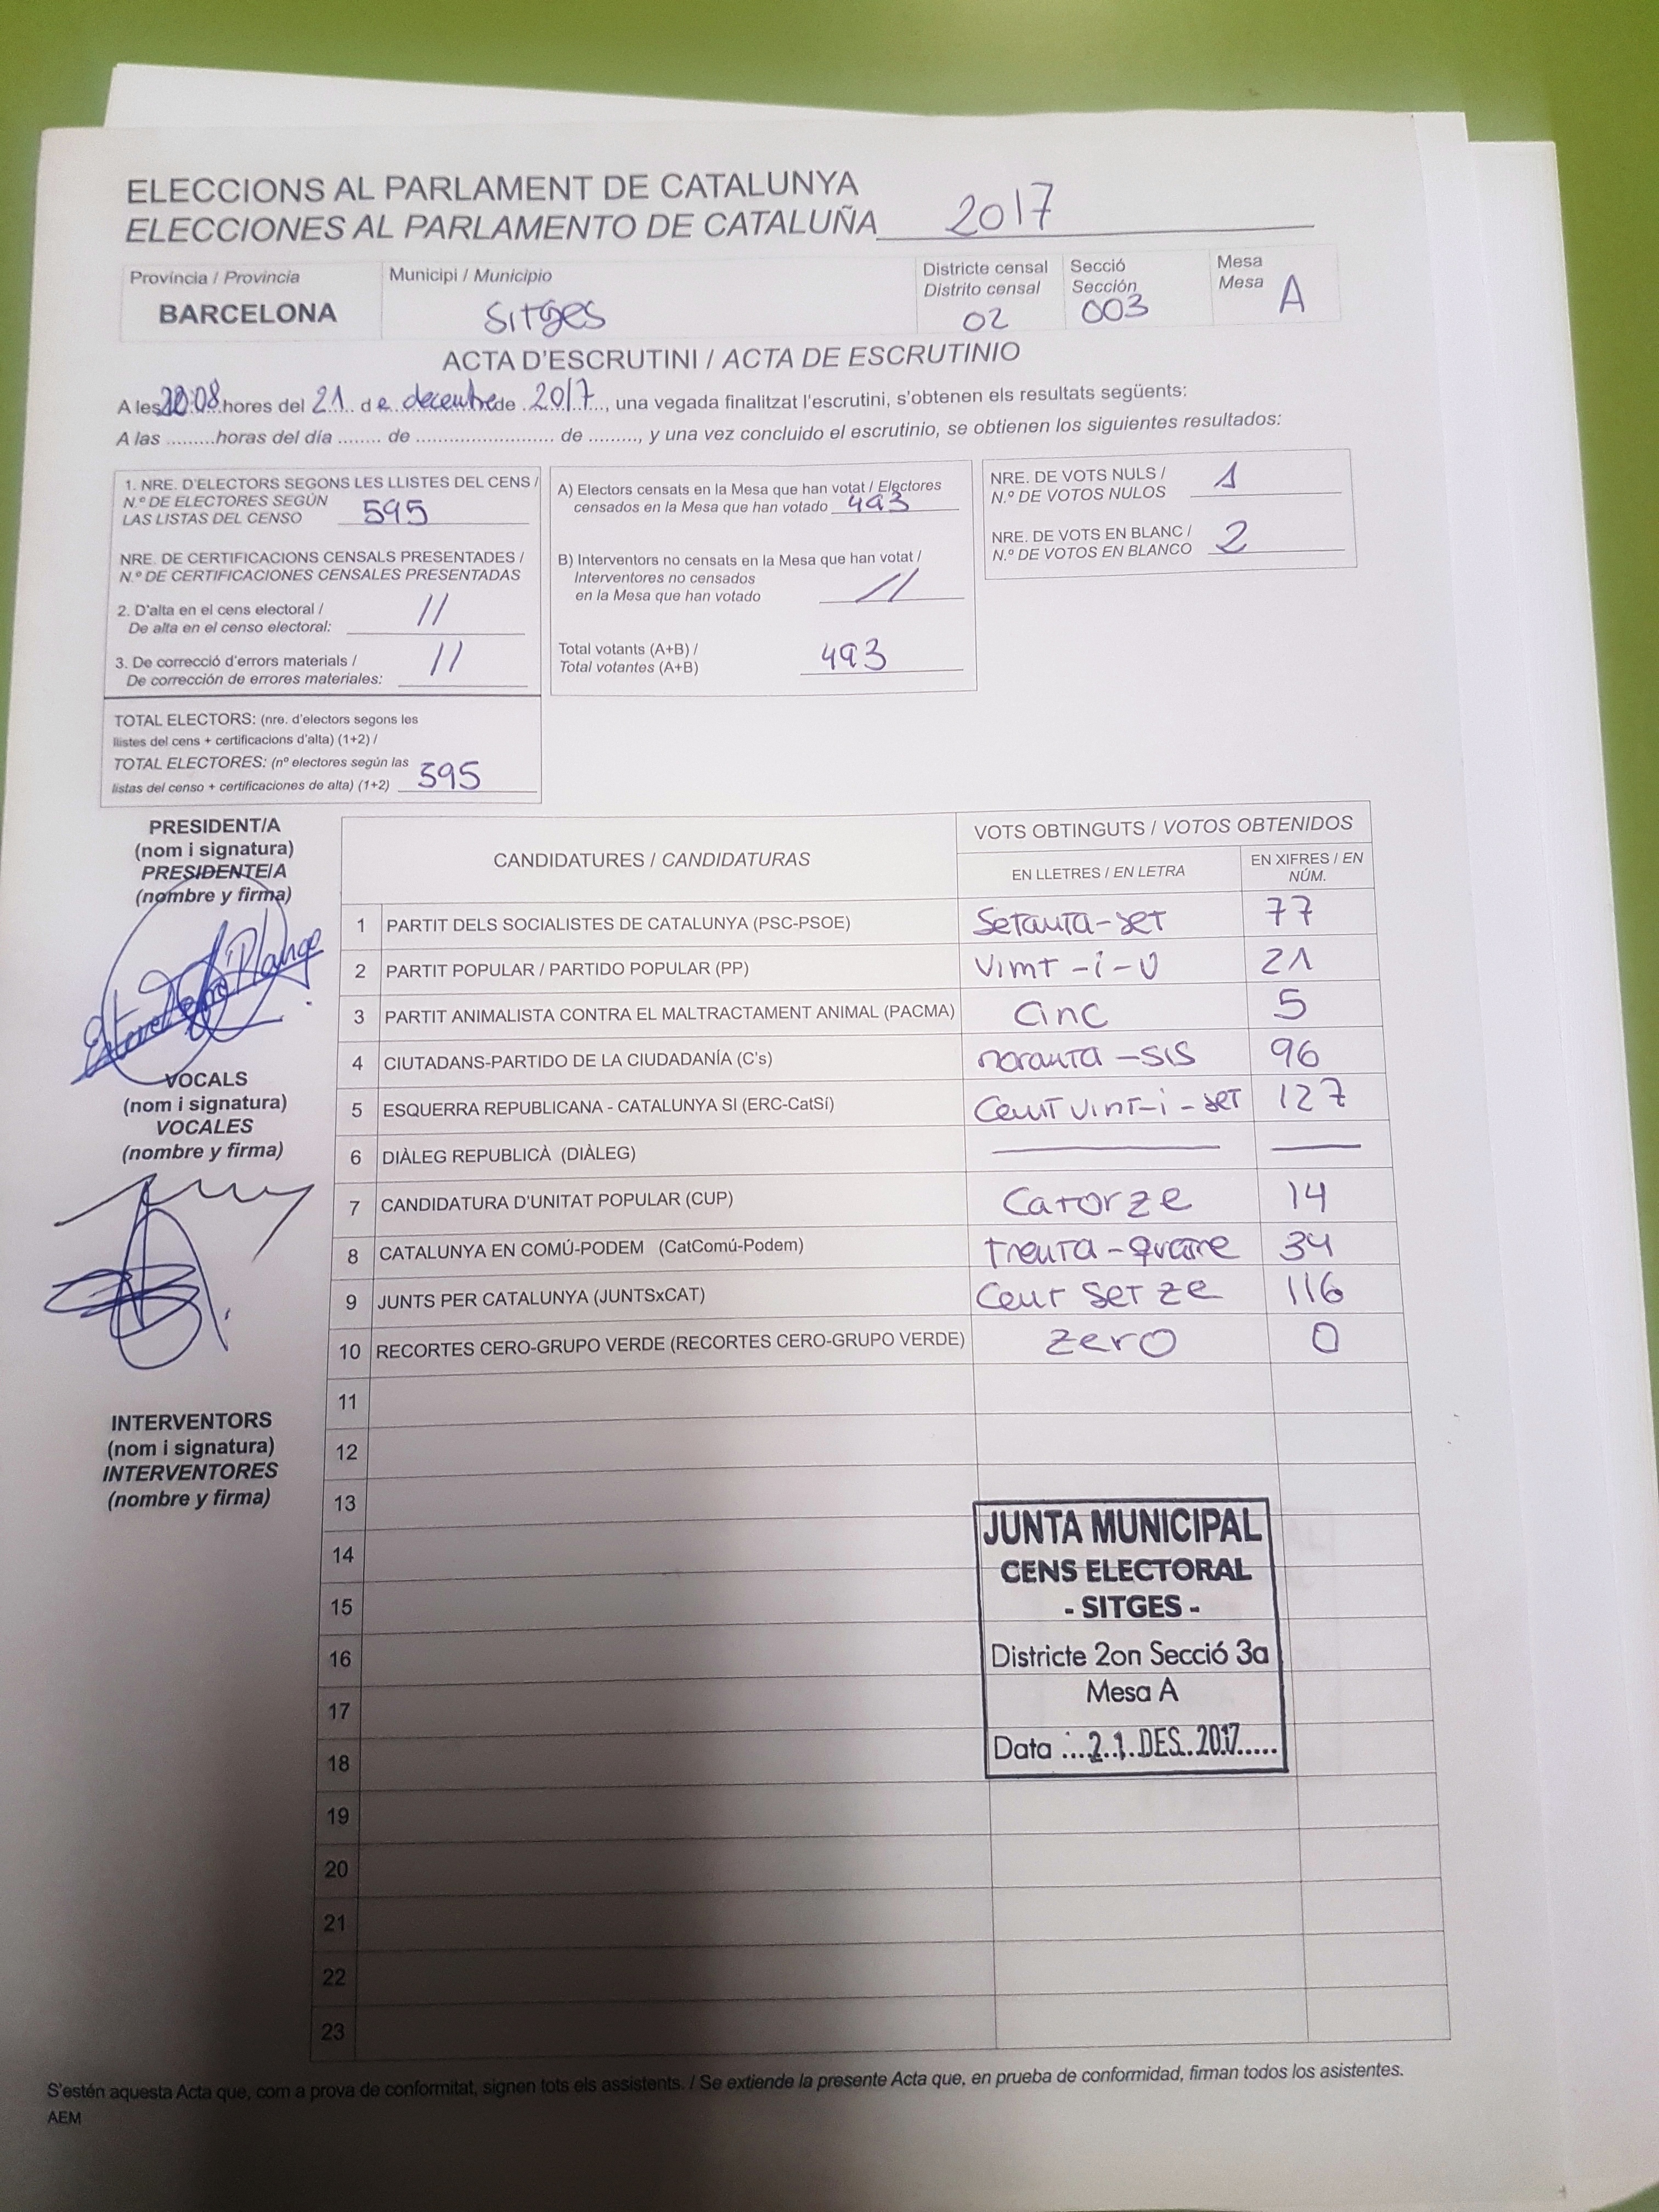 ELECCIONS AL PARLAMENT DE CATALUNYA
ELECCIONES AL PARLAMENTO DE CATALUÑA 2017
Provincia / Provincia
BARCELONA
Municipi / Municipio
Sitges
Districte censal
Distrito censal
02
Secció
Sección
003
Mesa
Mesa
A
ACTA D'ESCRUTINI / ACTA DE ESCRUTINIO
A les hores del 21 de decembre de 2017, una vegada finalitzat l'escrutini, s'obtenen els resultats següents:
A las ..........horas del día ........ de ........................ de ........., y una vez concluido el escrutinio, se obtienen los siguientes resultados:
1. NRE. D'ELECTORS SEGONS LES LLISTES DEL CENS /
N.º DE ELECTORES SEGÚN
LAS LISTAS DEL CENSO 595
NRE. DE CERTIFICACIONS CENSALS PRESENTADES /
N.º DE CERTIFICACIONES CENSALES PRESENTADAS
2. D'alta en el cens electoral /
De alta en el censo electoral: //
3. De correcció d'errors materials /
De corrección de errores materiales: //
TOTAL ELECTORS: (nre. d'electors segons les
llistes del cens + certificacions d'alta) (1+2) /
TOTAL ELECTORES: (nº electores según las
listas del censo + certificaciones de alta) (1+2) 595
A) Electors censats en la Mesa que han votat / Electores
censados en la Mesa que han votado 493
B) Interventors no censats en la Mesa que han votat /
Interventores no censados
en la Mesa que han votado //
Total votants (A+B) /
Total votantes (A+B) 493
NRE. DE VOTS NULS /
N.º DE VOTOS NULOS 1
NRE. DE VOTS EN BLANC /
N.º DE VOTOS EN BLANCO 2
PRESIDENT/A
(nom i signatura)
PRESIDENTE/A
(nombre y firma)
VOCALS
(nom i signatura)
VOCALES
(nombre y firma)
INTERVENTORS
(nom i signatura)
INTERVENTORES
(nombre y firma)
CANDIDATURES / CANDIDATURAS
VOTS OBTINGUTS / VOTOS OBTENIDOS
EN LLETRES / EN LETRA
EN XIFRES / EN
NÚM.
1 PARTIT DELS SOCIALISTES DE CATALUNYA (PSC-PSOE) Setanta-set 77
2 PARTIT POPULAR / PARTIDO POPULAR (PP) Vint-i-u 21
3 PARTIT ANIMALISTA CONTRA EL MALTRACTAMENT ANIMAL (PACMA) Cinc 5
4 CIUTADANS-PARTIDO DE LA CIUDADANÍA (C's) noranta-sis 96
5 ESQUERRA REPUBLICANA - CATALUNYA SI (ERC-CatSí) Cent vint-i-set 127
6 DIÀLEG REPUBLICÀ (DIÀLEG)
7 CANDIDATURA D'UNITAT POPULAR (CUP) Catorze 14
8 CATALUNYA EN COMÚ-PODEM (CatComú-Podem) trenta-quatre 34
9 JUNTS PER CATALUNYA (JUNTSxCAT) Cent setze 116
10 RECORTES CERO-GRUPO VERDE (RECORTES CERO-GRUPO VERDE) zero 0
11
12
13
14
15
16
17
18
19
20
21
22
23
JUNTA MUNICIPAL
CENS ELECTORAL
- SITGES -
Districte 2on Secció 3a
Mesa A
Data : ...2.1.DES.2017.....
S'estén aquesta Acta que, com a prova de conformitat, signen tots els assistents. / Se extiende la presente Acta que, en prueba de conformidad, firman todos los asistentes.
AEM